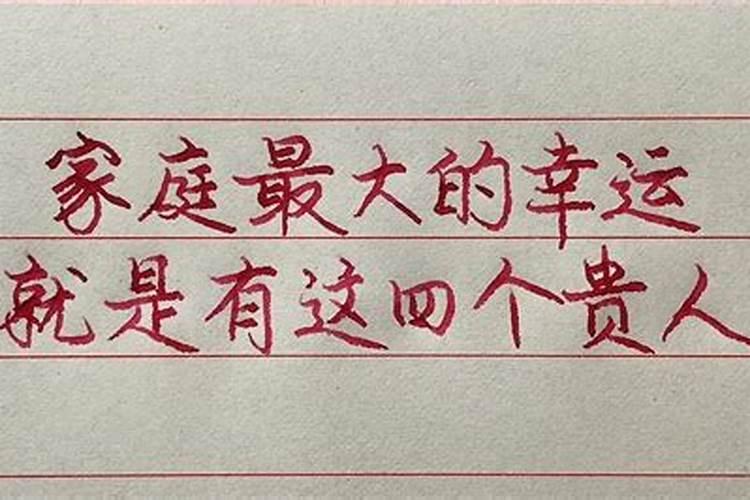 家庭最大的幸运
就是有这四个贵人